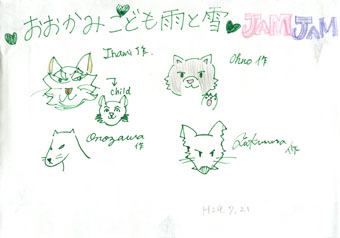 おおかみこども雨と雪 JAM JAM
Inawi 作
child
Ohno 作
Onozawa
作
作
H24.7,25